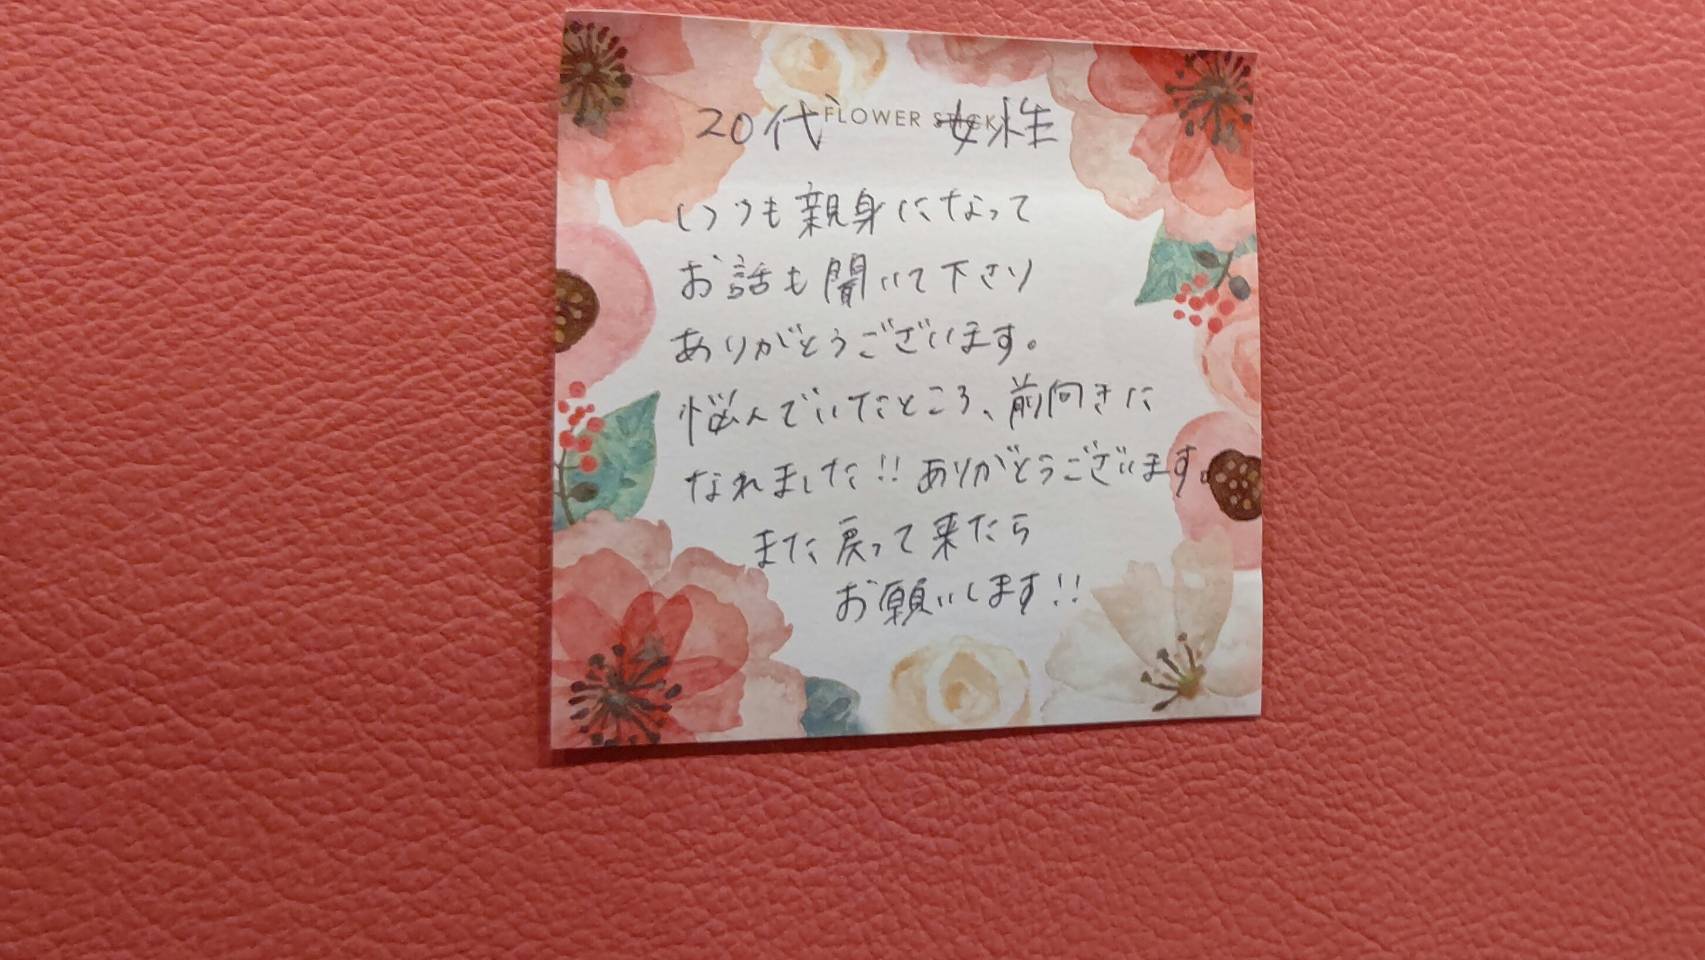 FLOWER STICKY
20代 女性
いつも親身になって
お話も聞いて下さり
ありがとうございます。
悩んでいたところ、前向きに
なれました!! ありがとうございます。
また戻って来たら
お願いします!!